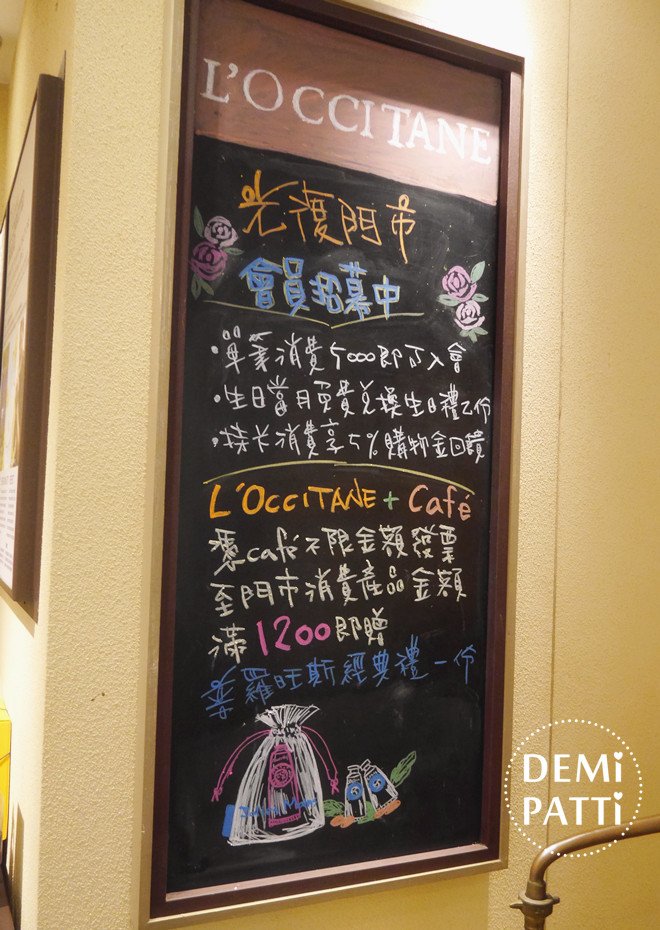 L'OCCITANE
光復門市
會員招募中
·單筆消費5000即可入會
·生日當月免費兌換生日禮乙份
·持卡消費享5%購物金回饋
L'OCCITANE + Café
憑café不限金額發票
至門市消費產品金額
滿1200即贈
普羅旺斯經典禮一份
DEMi
PATTi